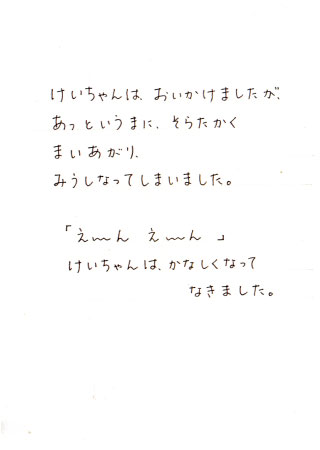 けいちゃんは、おいかけましたが、
あっというまに、そらたかく
まいあがり、
みうしなってしまいました。
「え〜ん え〜ん 」
けいちゃんは、かなしくなって
なきました。